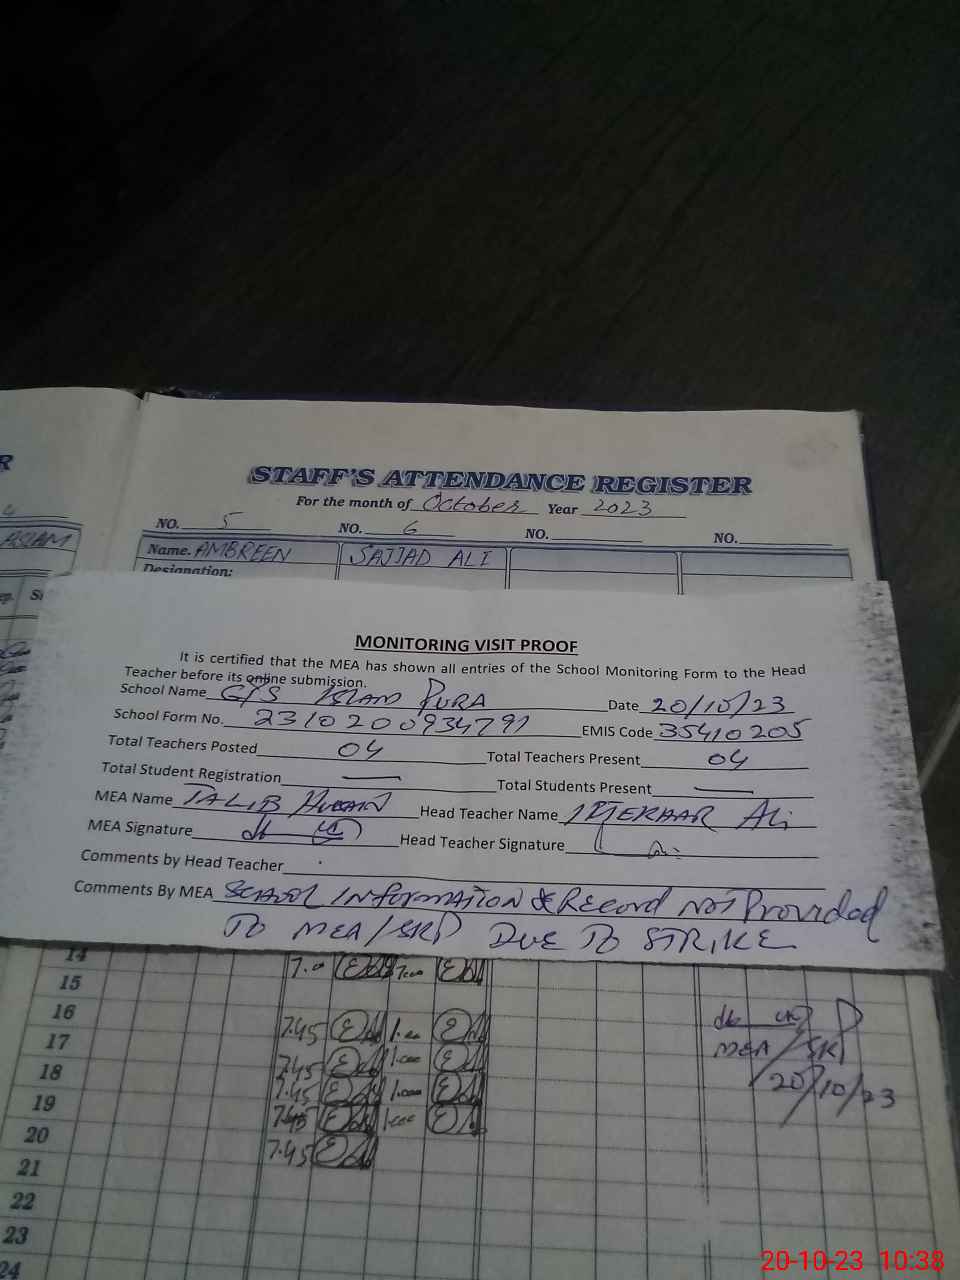 R
STAFF'S ATTENDANCE REGISTER
For the month of October Year 2023
4
NO. 5 NO. 6 NO. NO.
ASLAM
Name. AMBREEN SAJJAD ALI
Designation:
MONITORING VISIT PROOF
It is certified that the MEA has shown all entries of the School Monitoring Form to the Head
Teacher before its online submission.
School Name GPS ISLAM PURA Date 20/10/23
School Form No. 23102009934791 EMIS Code 35410205
Total Teachers Posted 04 Total Teachers Present 04
Total Student Registration — Total Students Present —
MEA Name TALIB HUSSAIN Head Teacher Name IFTEKHAR Ali
MEA Signature Head Teacher Signature
Comments by Head Teacher
Comments By MEA SCHOOL INFORMATION & Record NOT Provided
TO MEA/SKP DUE TO STRIKE
14
15 7.00 7.00
16
17 7.45 1.00
18 7.45 1.00
19 7.45 1.00
20 7.45 1.00
21 7.45
22
23
24
MEA/SKP
20/10/23
20-10-23 10:38